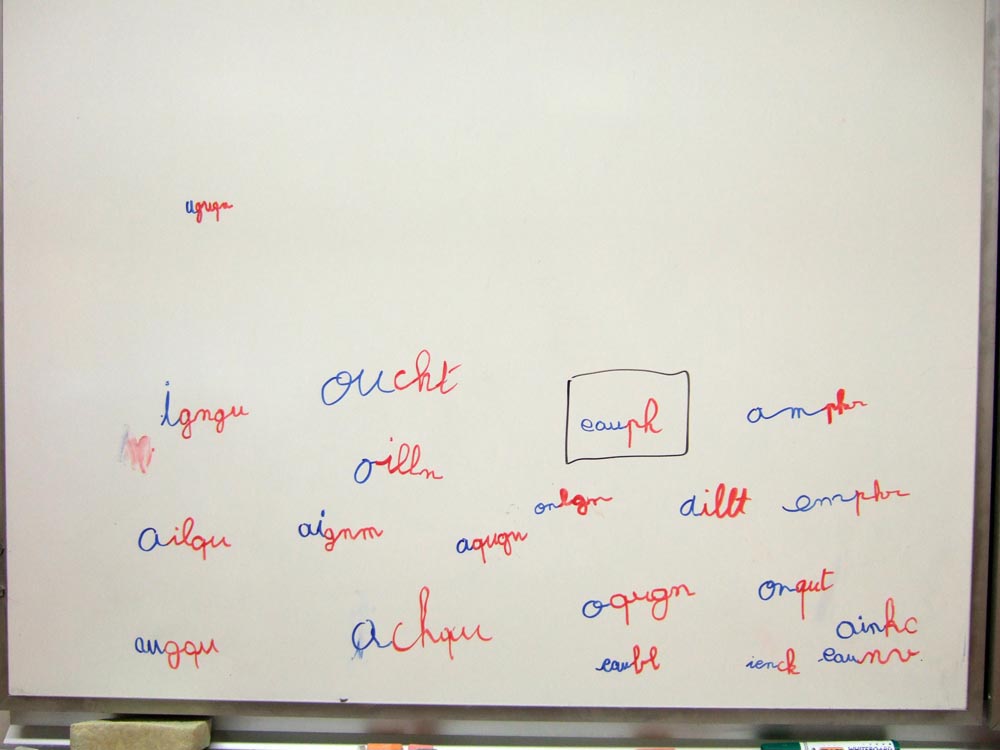 oucht
igngu
eauph
amphr
oilln
onlgn
dillt
emphr
ailqu
aignm
aqugn
oqugn
onqut
ainkc
auggu
achqu
eaubl
ienck
eaunv
WHITEBOARD